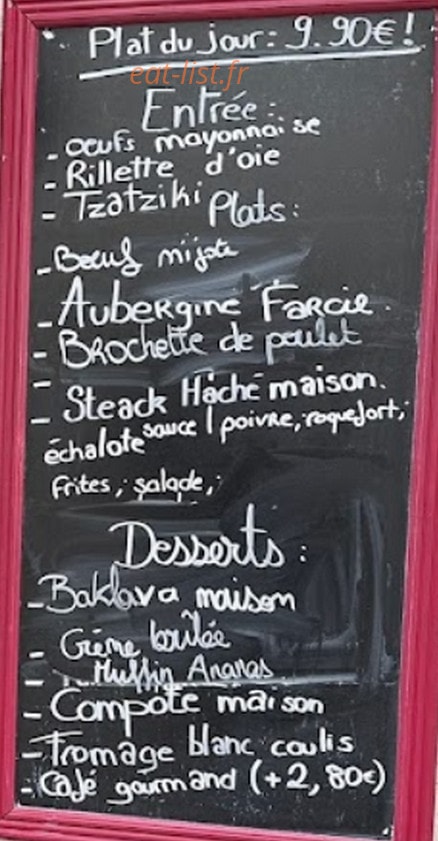 Plat du jour : 9.90€ !
eat-list.fr
Entrée :
- oeufs mayonnaise
- Rillette d'oie
- Tzatziki
Plats :
- Boeuf mijoté
- Aubergine Farcie.
- Brochette de poulet
-
- Steack Hâché maison.
échalote sauce / poivre, roquefort,
frites, salade,
Desserts :
- Baklava maison
- Crème brûlée
- Muffin Ananas
- Compote maison
- Fromage blanc coulis
- Café gourmand (+2,80€)